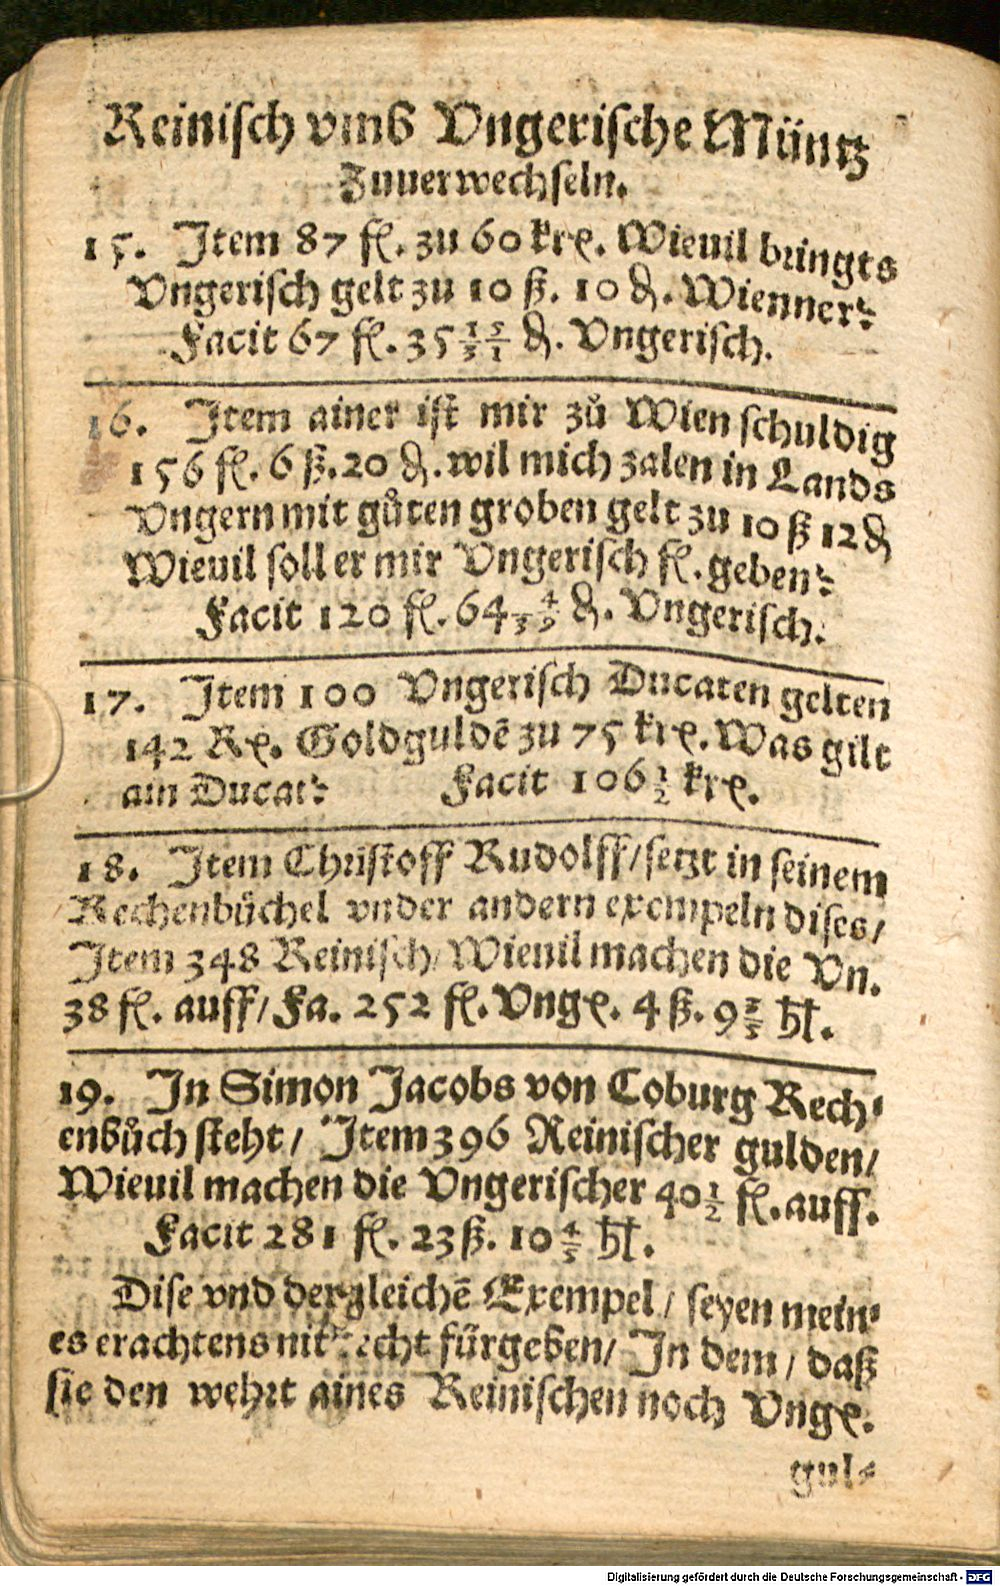 Reinisch vmb Vngerische Müntz
Zuuerwechseln.
15. Item 87 fl. zu 60 krꝛ. Wieuil bringts
Vngerisch gelt zu 10 ß. 10 ₰. Wienner?
Facit 67 fl. 35 15/31 ₰. Vngerisch.
16. Item ainer ist mir zů Wien schuldig
156 fl. 6 ß. 20 ₰. wil mich zalen in Lands
Vngern mit gůten groben gelt zu 10 ß 12 ₰
Wieuil soll er mir Vngerisch fl. geben?
Facit 120 fl. 64 4/39 ₰. Vngerisch.
17. Item 100 Vngerisch Ducaten gelten
142 Rꝛ. Goldguldē zu 75 krꝛ. Was gilt
ain Ducat? Facit 106 1/2 krꝛ.
18. Item Christoff Rudolff/ setzt in seinem
Rechenbůchel vnder andern exempeln dises/
Item 348 Reinisch/ Wieuil machen die Vn.
38 fl. auff/ Fa. 252 fl. Vngꝛ. 4 ß. 9 3/5 hl.
19. In Simon Jacobs von Coburg Rech-
enbůch steht/ Item 396 Reinischer gulden/
Wieuil machen die Vngerischer 40 1/2 fl. auff.
Facit 281 fl. 23 ß. 10 4/5 hl.
Dise vnd dergleichē Exempel/ seyen mein-
es erachtens nit recht fürgeben/ In dem/ daß
sie den wehrt aines Reinischen noch Vngꝛ.
gul-
Digitalisierung gefördert durch die Deutsche Forschungsgemeinschaft - DFG